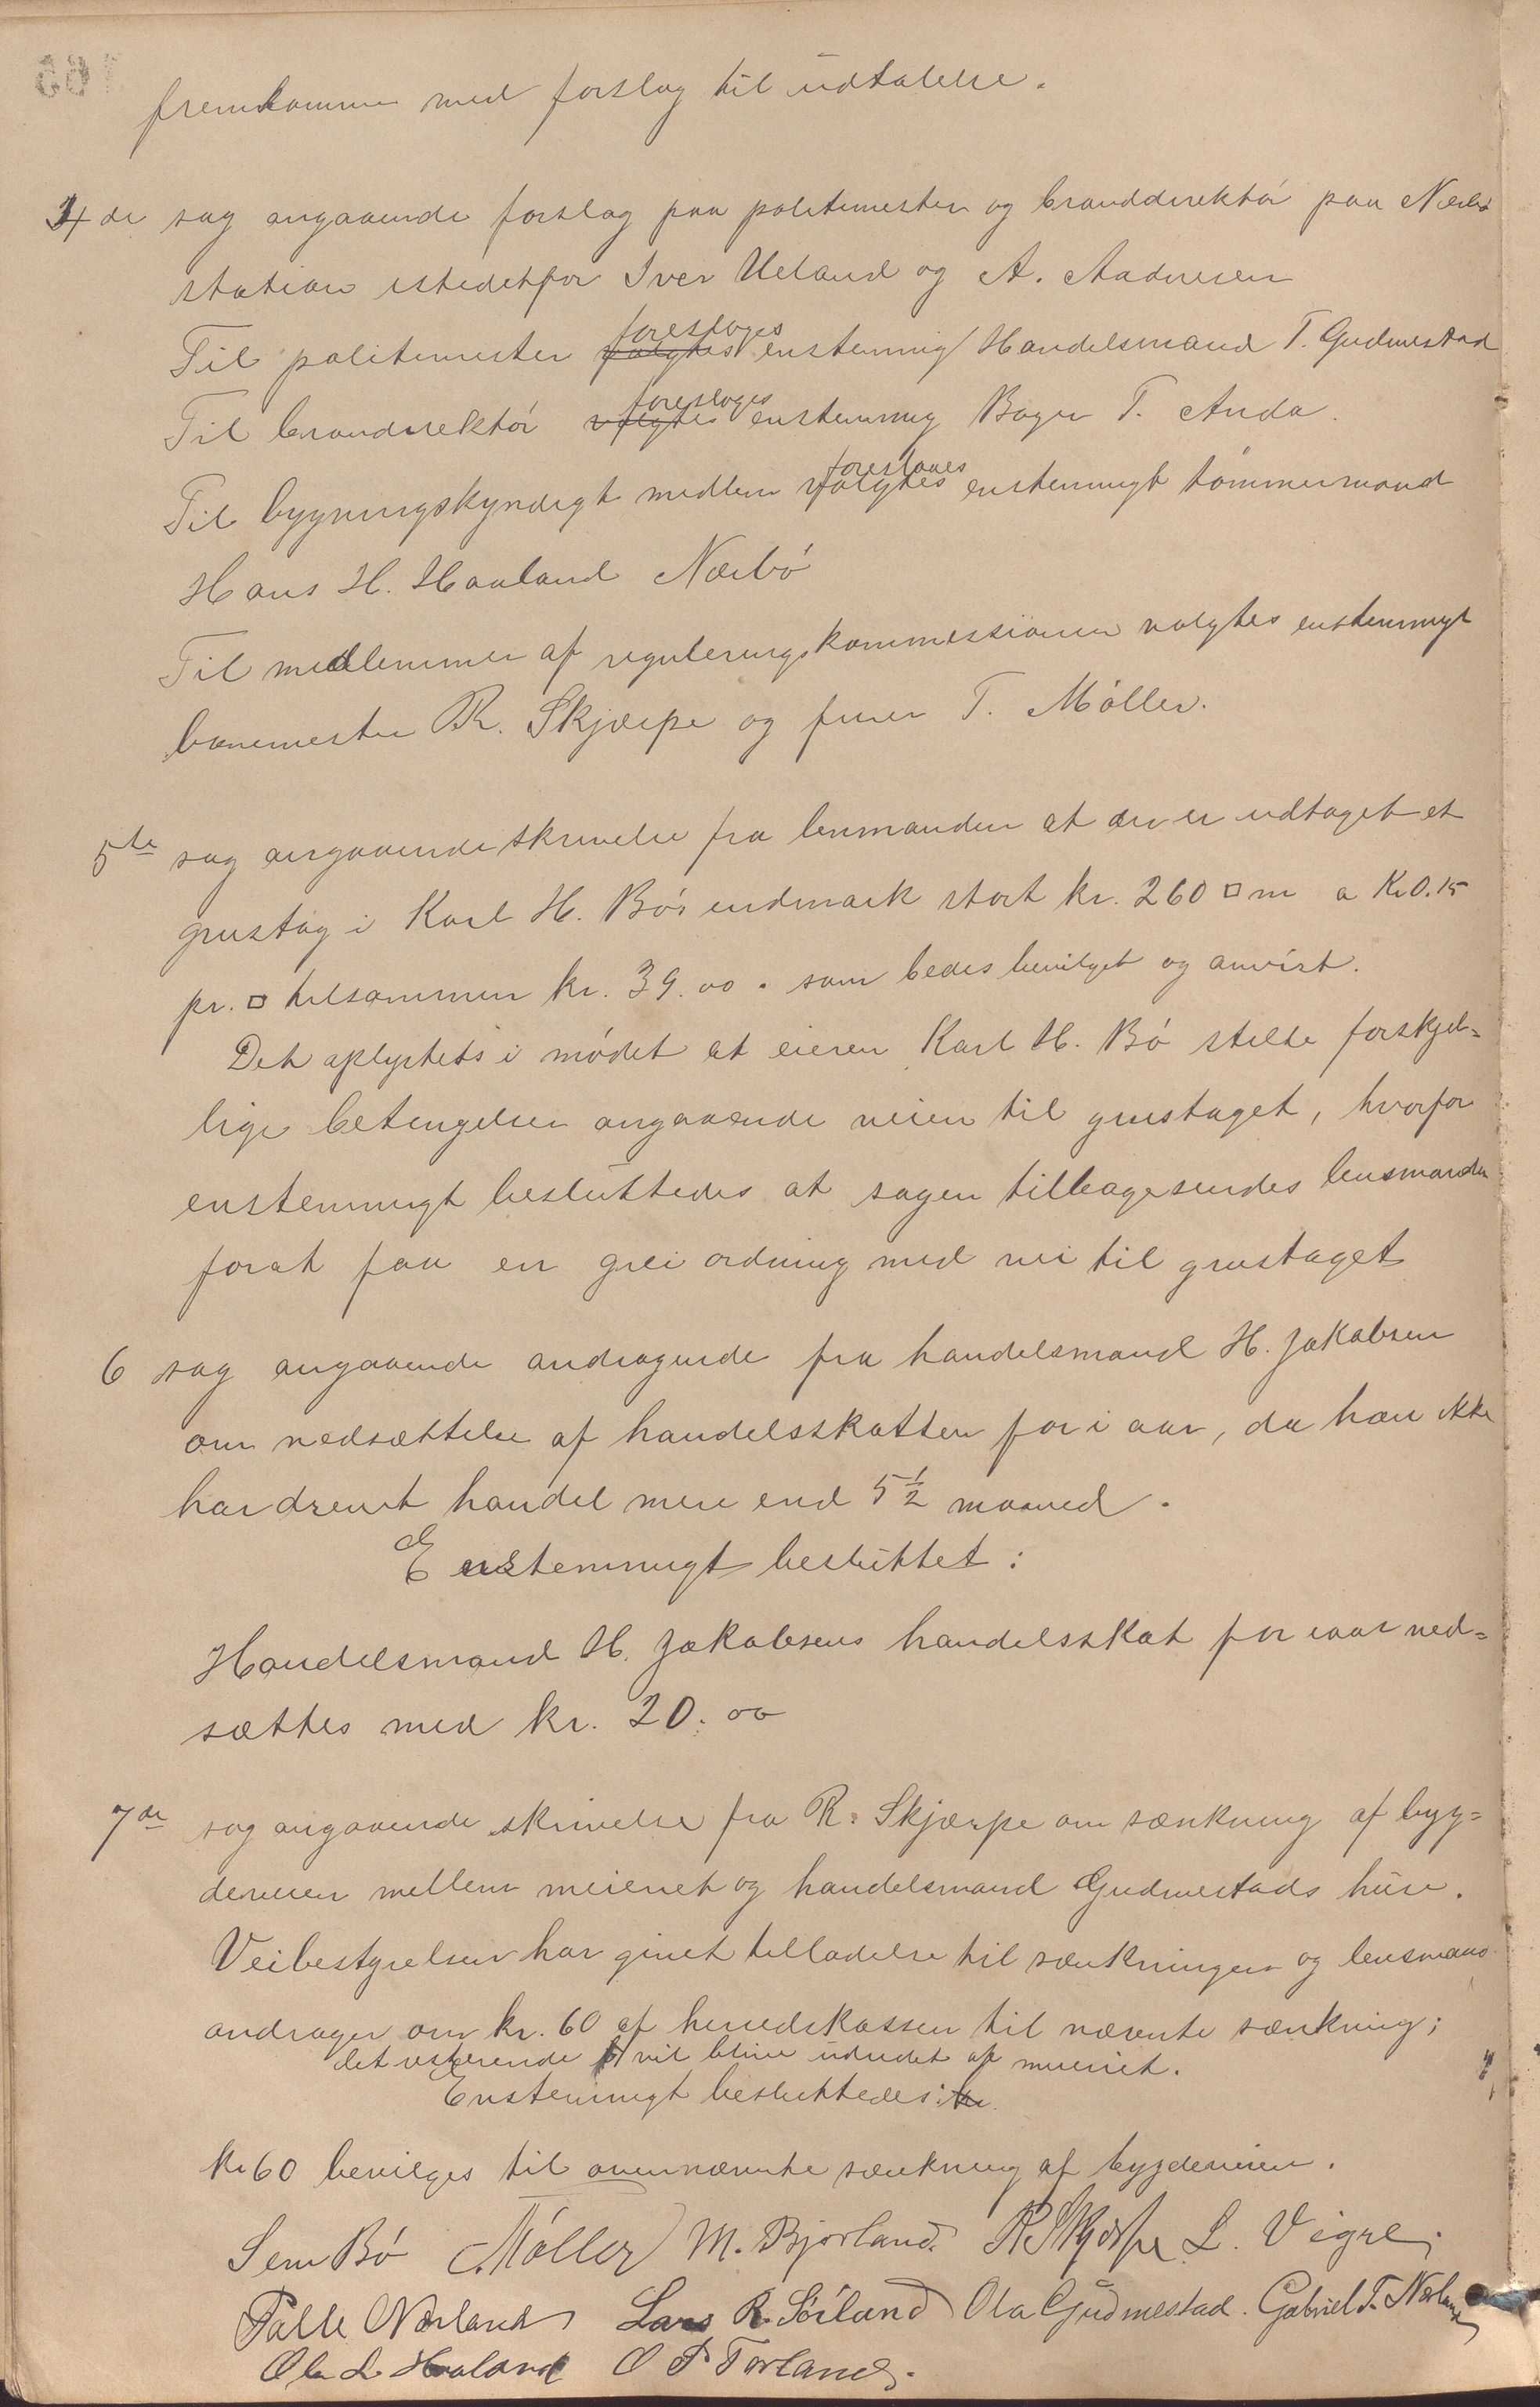 fremkomme med forslag til udtalelse.
4de sag angaaende forslag paa politimester og branddirektør paa Nærbø
station istedetfor Iver Ueland og A. Aadnesen
Til politimester valgtes foreslages enstemmig Handelsmand T. Gudmestad
Til brandirektør valgtes foreslages enstemmig Bager T. Anda.
Til bygningskyndigt medlem valgtes foreslaaes enstemmigt tømmermand
Hans H. Haaland Nærbø
Til medlemmer af reguleringskommissionen valgtes enstemmigt
banemester R. Skjærpe og T. Møller.
5te sag angaaende skrivelse fra lensmanden at der er udtaget et
grustag i Karl H. Bøs udmark stort kr. 260 □ m a Kr 0.15
pr. □ tilsammen kr. 39.00. som bedes bevilget og anvist.
Det oplystets i mødet at eieren Karl H. Bø stilte forskjel=
lige betingelser angaaende veien til grustaget, hvorfor
enstemmigt besluttedes at sagen tilbagesendes lensmanden
forat faa en grei ordning med vei til grustaget
6 sag angaaende andragende fra handelsmand H. Jakobsen
om nedsættelse af handelsskatten for i aar, da han ikke
har drevet handel mere end 5 1/2 maaned.
Enstemmigt besluttet:
Handelsmand H. Jakobsens handelsskat for iaar ned=
sættes med kr. 20.00
7de sag angaaende skrivelse fra R. Skjærpe om sænkning af byg=
deveien mellem meieriet og handelsmand Gudmestads huse.
Veibestyrelsen har givet tilladelse til sænkningen og lensmand
andrager om kr. 60 af herredskassen til nævnte sænkning;
det resterende vil blive udredet af meieriet.
Enstemmigt besluttedes:
Kr 60 bevilges til ovennævnte sænkning af bygdeveien.
Sem Bø Møller M. Bjorland. R Skjærpe L. Vigre.
Palle Nærland Lars R. Sørland Ola Gudmestad. Gabriel T. Nærland
Ole L Haaland O P Torland.